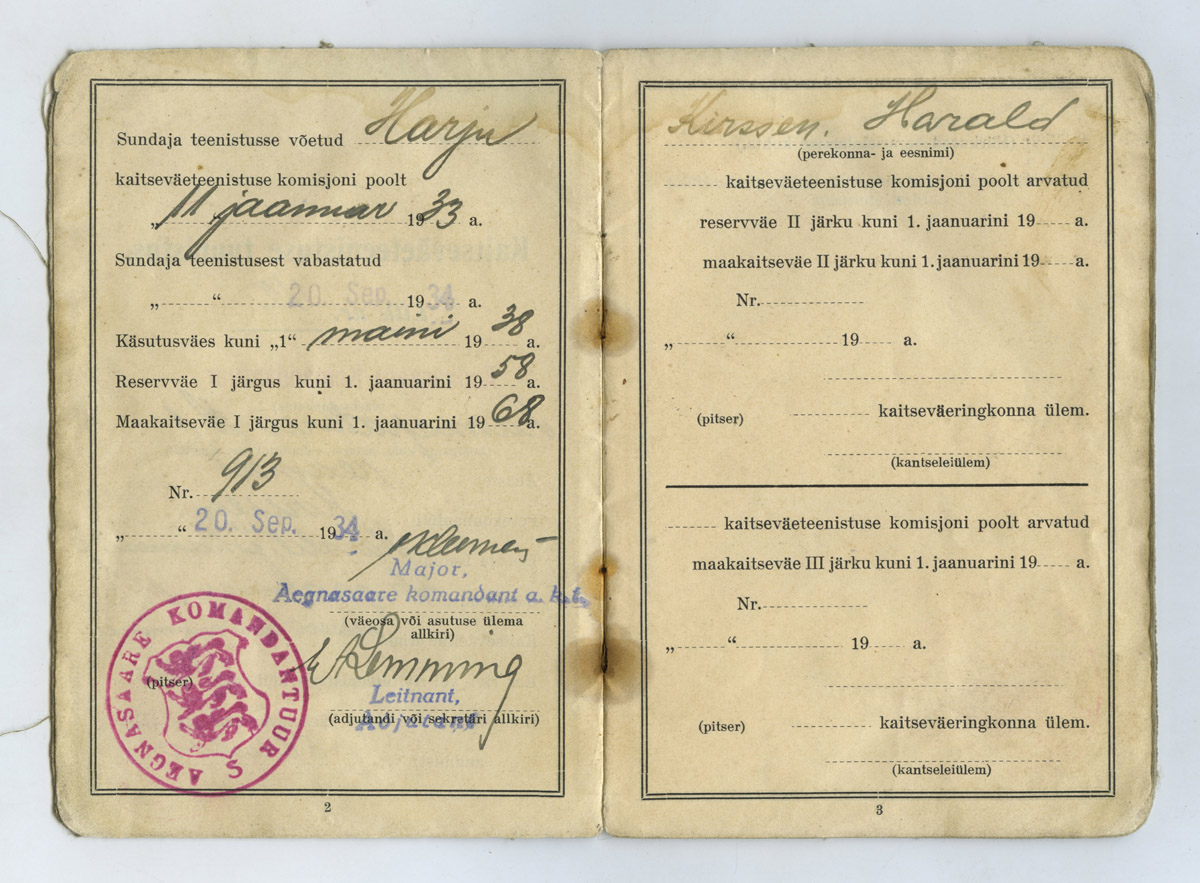 Sundaja teenistusse võetud Harju
kaitseväeteenistuse komisjoni poolt
„ 11 jaanuar 1933 a.
Sundaja teenistusest vabastatud
„ “ 20. Sep. 1934 a.
Käsutusväes kuni „1“ maini 1938 a.
Reservväe I järgus kuni 1. jaanuarini 1958 a.
Maakaitseväe I järgus kuni 1. jaanuarini 1968 a.
Nr. 913
„ “ 20. Sep. 1934 a.
Major,
Aegnasaare komandant a. k. t.
(väeosa või asutuse ülema
allkiri)
Leitnant,
(adjutandi või sekretäri allkiri)
Adjutant
(pitser)
AEGNASAARE KOMANDANTUUR S
2
Kirssen, Harald
(perekonna- ja eesnimi)
kaitseväeteenistuse komisjoni poolt arvatud
reservväe II järku kuni 1. jaanuarini 19 a.
maakaitseväe II järku kuni 1. jaanuarini 19 a.
Nr.
„ “ 19 a.
(pitser) kaitseväeringkonna ülem.
(kantseleiülem)
kaitseväeteenistuse komisjoni poolt arvatud
maakaitseväe III järku kuni 1. jaanuarini 19 a.
Nr.
„ “ 19 a.
(pitser) kaitseväeringkonna ülem.
(kantseleiülem)
3